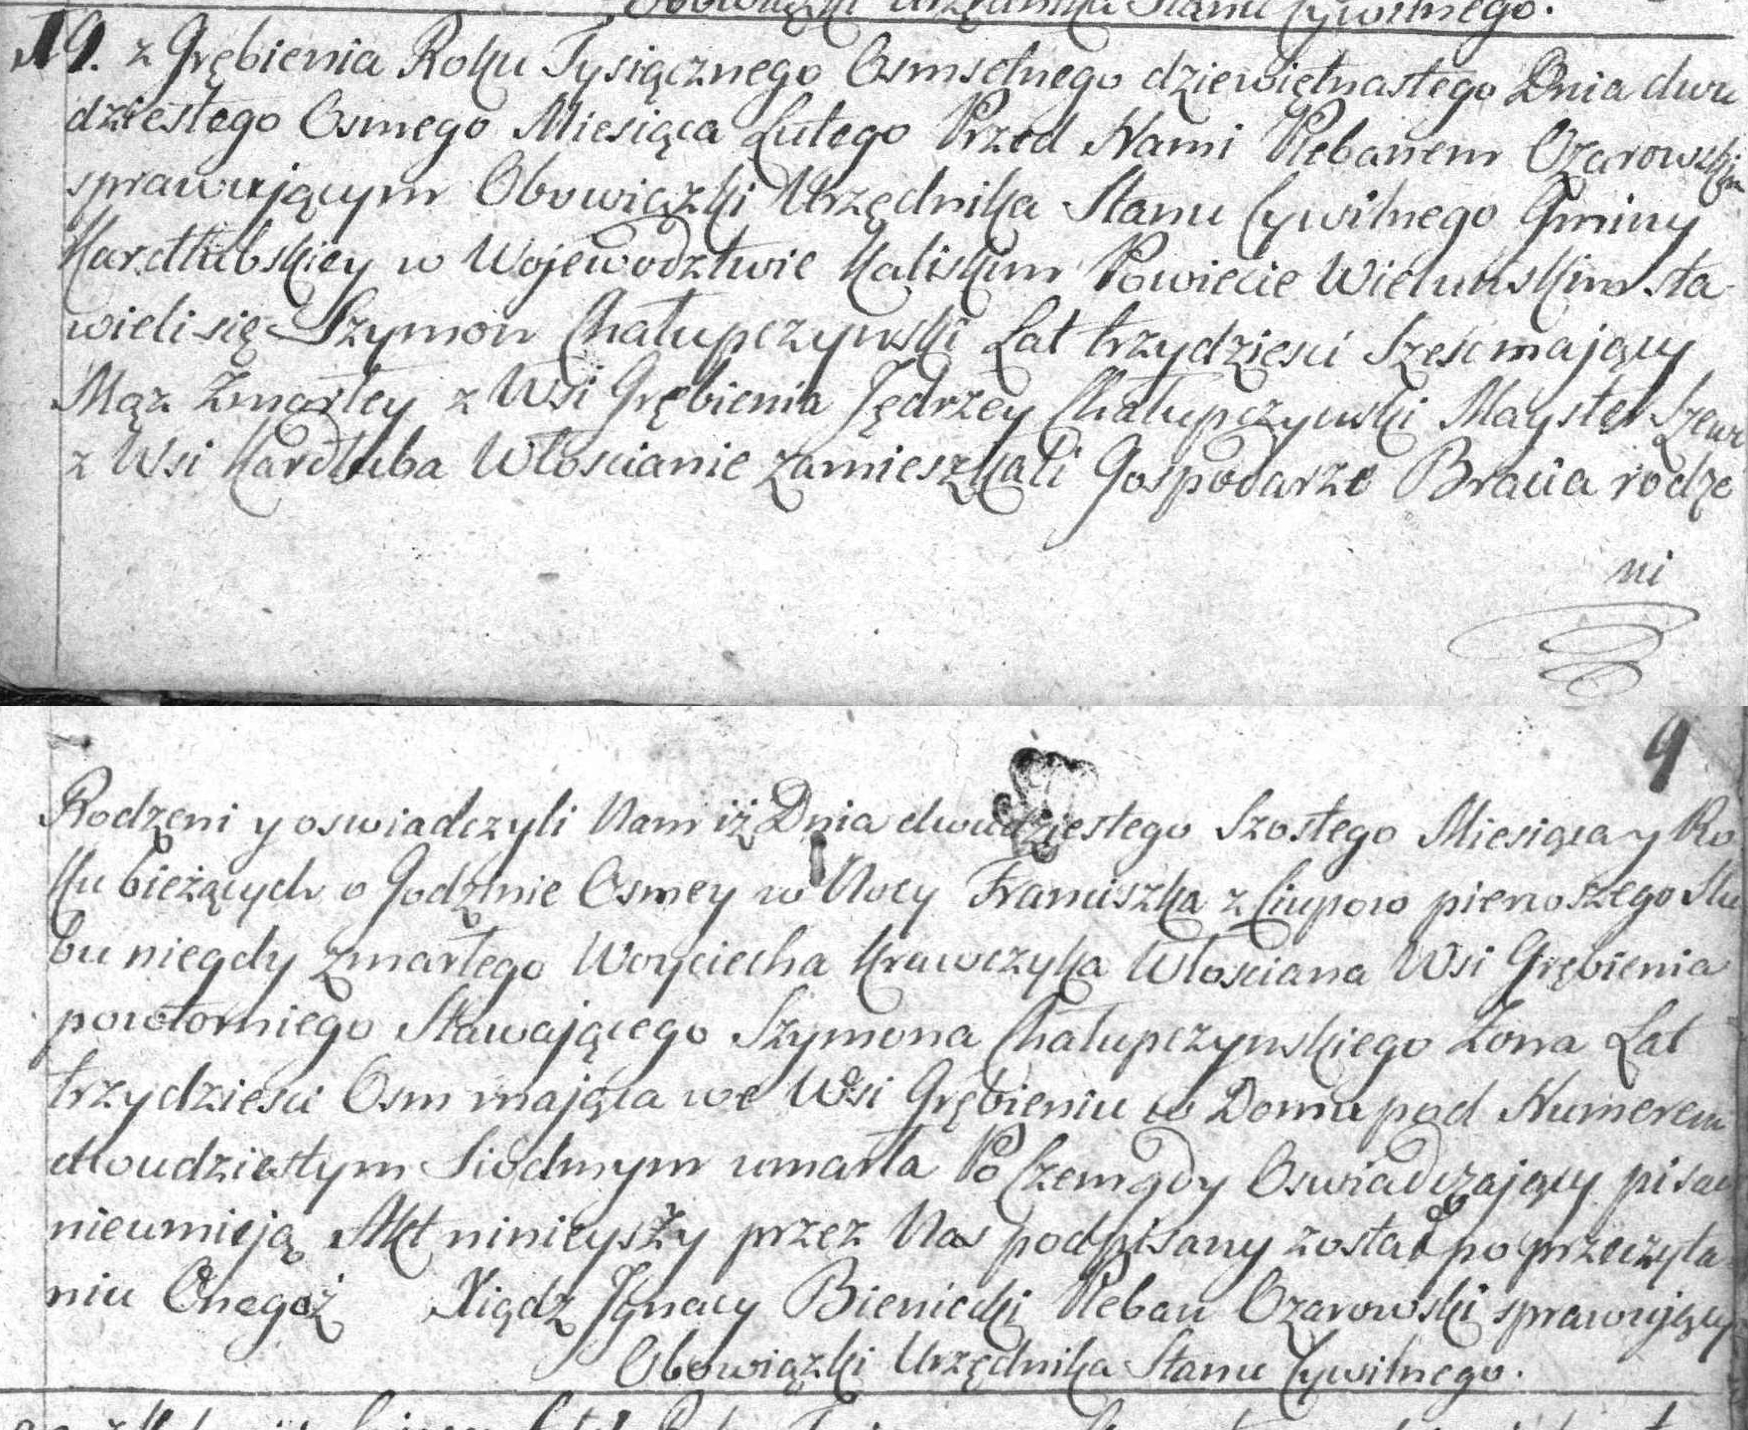 Obowiązki Urzędnika Stanu Cywilnego.
19. z Grębienia Roku Tysiącznego Osmsetnego dziewiętnastego Dnia dwu
dziestego Osmego Miesiąca Lutego Przed Nami Plebanem Ozarowskim
sprawującym Obowiązki Urzędnika Stanu Cywilnego Gminy
Kardłubskiey w Wojewodztwie Kaliskim Powiecie Wielunskim sta
wieli się Szymon Chałupczynski Lat trzydziesci Szesc mający
Mąz Zmarłey z Wsi Grębienia Jędrzey Chałupczynski Mayster Szewc
z Wsi Kardłuba Włoscianie zamieszkali Gospodarze Bracia rodze
ni
9
Rodzeni y oswiadczyli Nam iż Dnia dwudziestego Szostego Miesiąca y Ro
ku bieżących o Godzinie Osmey w Nocy Franciszka z Ciupow pierwszego Slu
bu niegdy zmarłego Woyciecha Krawczyka Włosciana Wsi Grębienia
powtorniego Stawającego Szymona Chałupczynskiego Zona Lat
trzydziesci Osm mająca we Wsi Grębieniu w Domu pod Numerem
dwudziestym Siodmym umarła Po Czem gdy Oswiadczający pisac
nieumieją Akt ninieyszy przez Nas podpisany został po przeczyta
niu Onegoż Xiądz Ignacy Bieniecki Pleban Ozarowski sprawujący
Obowiązki Urzędnika Stanu Cywilnego.